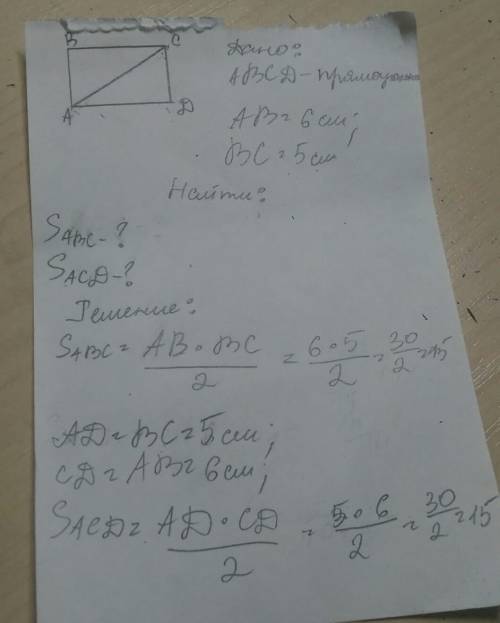 B C
A D
Дано:
ABCD - прямоугольн
AB = 6 см;
BC = 5 см
Найти:
S ABC - ?
S ACD - ?
Решение:
S ABC = AB · BC / 2 = 6 · 5 / 2 = 30 / 2 = 15
AD = BC = 5 см;
CD = AB = 6 см;
S ACD = AD · CD / 2 = 5 · 6 / 2 = 30 / 2 = 15